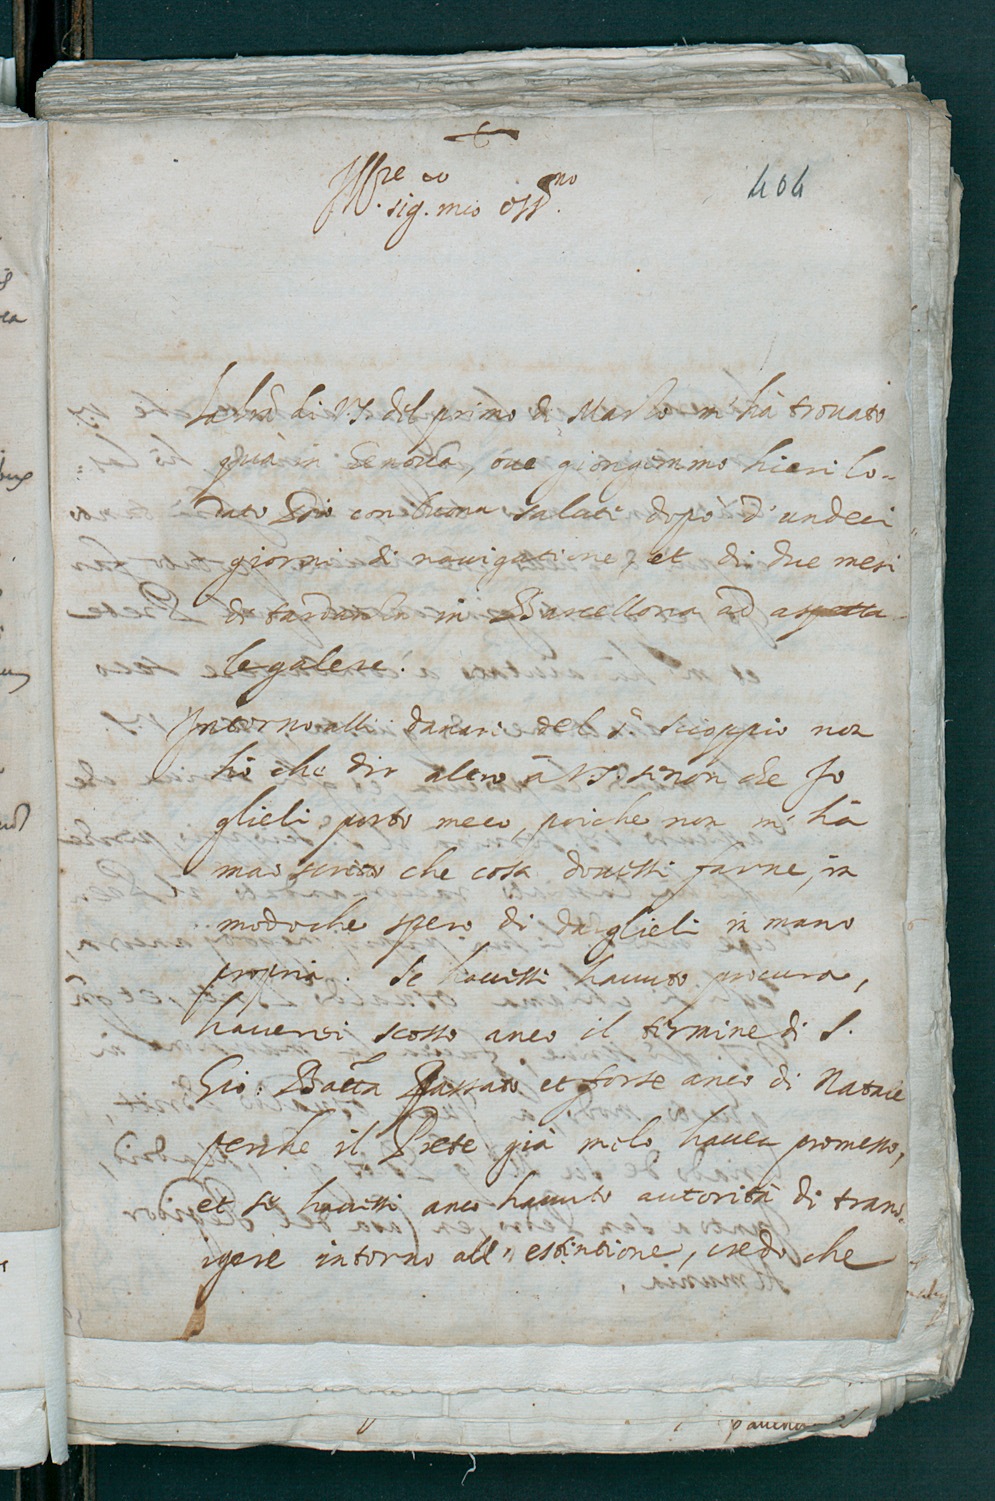 +
Ill.re
sig. mio oss.mo
404
La lra di V.S. del primo di Marzo m'hà trouato
quà in Genoua, oue giongemmo hieri lo-
dato Dio con buona salute dopo d'undeci
giorni di nauigatione, et di due mesi
di tardanza in Barcellona ad aspetta-
le galere.
Intorno alli danari del S.r Scioppio non
hò che dir altro à V.S. se non che Io
glieli porto meco, poiche non m'hà
mai scritto che cosa douessi farne, in
modo che spero di darglieli in mano
propria. Se hauessi hauuto procura,
hauerei scosso anco il termine di S.
Gio: Batta Passato et forse anco di Natale
perche il Prete già melo hauea promesso,
et se hauessi anco hauuto autorità di trans-
igere intorno all'estintione, credo che